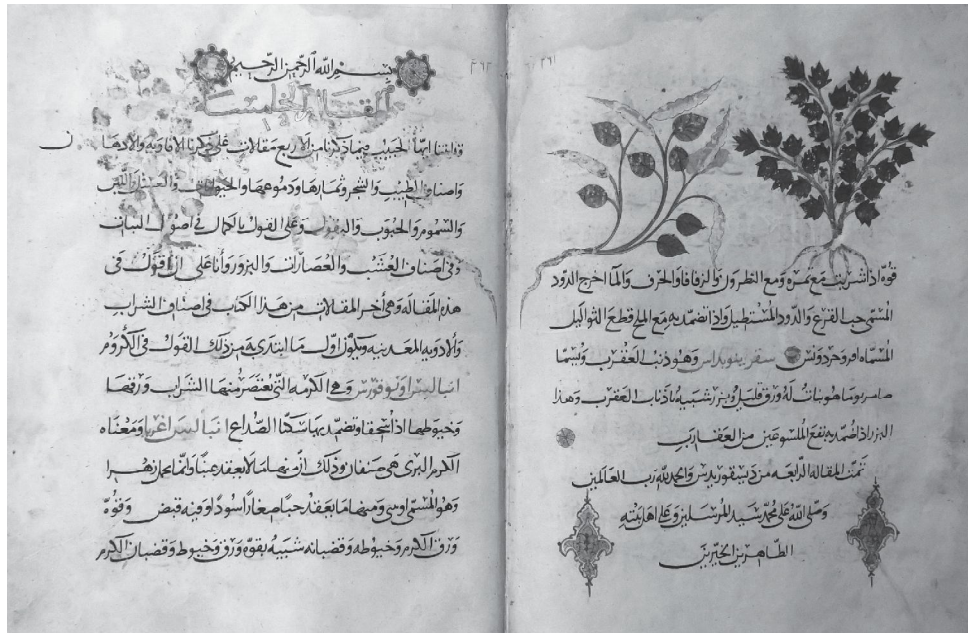 قوة اذا شربت مع ثمره ومع النطرون والزفا والحرف والما اخرج الدود
المسمى حب القرع والدود المستطيل واذا تضمد به مع الملح قطع الثواليل
المسماه وهو ذنب العقرب
ما هو نبات له ورق قليل وبزر شبيه باذناب العقرب وهذا
البزر اذا ضمد به نفع الملسوعين من العقارب
تمت المقالة الرابعه من ديسقوريدس والحمد لله رب العالمين
وصلى الله على محمد سيد المرسلين وعلى اهل بيته
الطاهرين الخيرين
بسم الله الرحمن الرحيم
المقالة الخامسة
ايها الحبيب فيما ذكرنا من الاربع مقالات على ذكرنا الافاويه والادهان
واصناف الطيب والشجر وثمارها ودموعها والحيوان والعسل واللبن
والسموم والحبوب والبقول وعلى القول بالكمال في اصول النبات
وفي اصناف العشب والعصارات والبزور وانا على ان اقول في
هذه المقاله وهى اخر المقالات من هذا الكتاب في اصناف الشراب
والادويه المعدنيه ويكون اول ما ابتدى به من ذلك القول في الكروم
وهي الكرمه التي يعتصر منها الشراب ورقها
وخيوطها اذا سحقا وتضمد بها سكنا الصداع انبالس اغريا ومعناه
الكرم البرى هي صنفان وذلك ان منها ما لا يعقد عنبا وانما يحمل زهرا
وهو المسمى ومنها ما يعقد حبا صغارا اسود وفيه قبض وقوة
ورق الكرم وخيوطه وقضبانه شبيه بقوة ورق وخيوط وقضبان الكرم